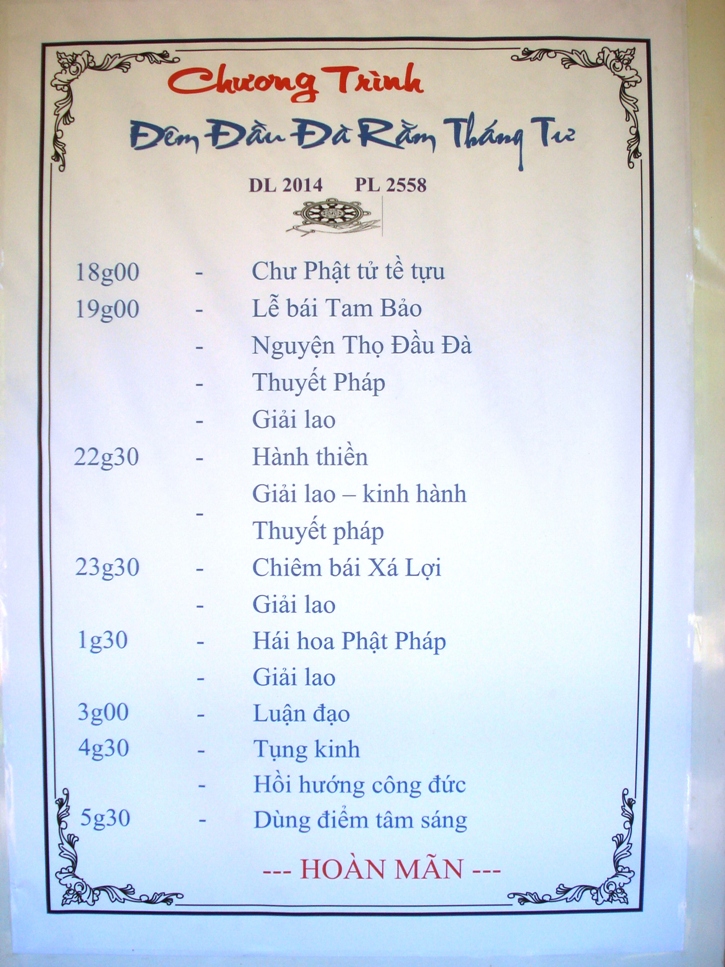 Chương Trình
Đêm Đầu Đà Rằm Tháng Tư
DL 2014 PL 2558
18g00 - Chư Phật tử tề tựu
19g00 - Lễ bái Tam Bảo
- Nguyện Thọ Đầu Đà
- Thuyết Pháp
- Giải lao
22g30 - Hành thiền
- Giải lao – kinh hành
Thuyết pháp
23g30 - Chiêm bái Xá Lợi
- Giải lao
1g30 - Hái hoa Phật Pháp
- Giải lao
3g00 - Luận đạo
4g30 - Tụng kinh
- Hồi hướng công đức
5g30 - Dùng điểm tâm sáng
--- HOÀN MÃN ---